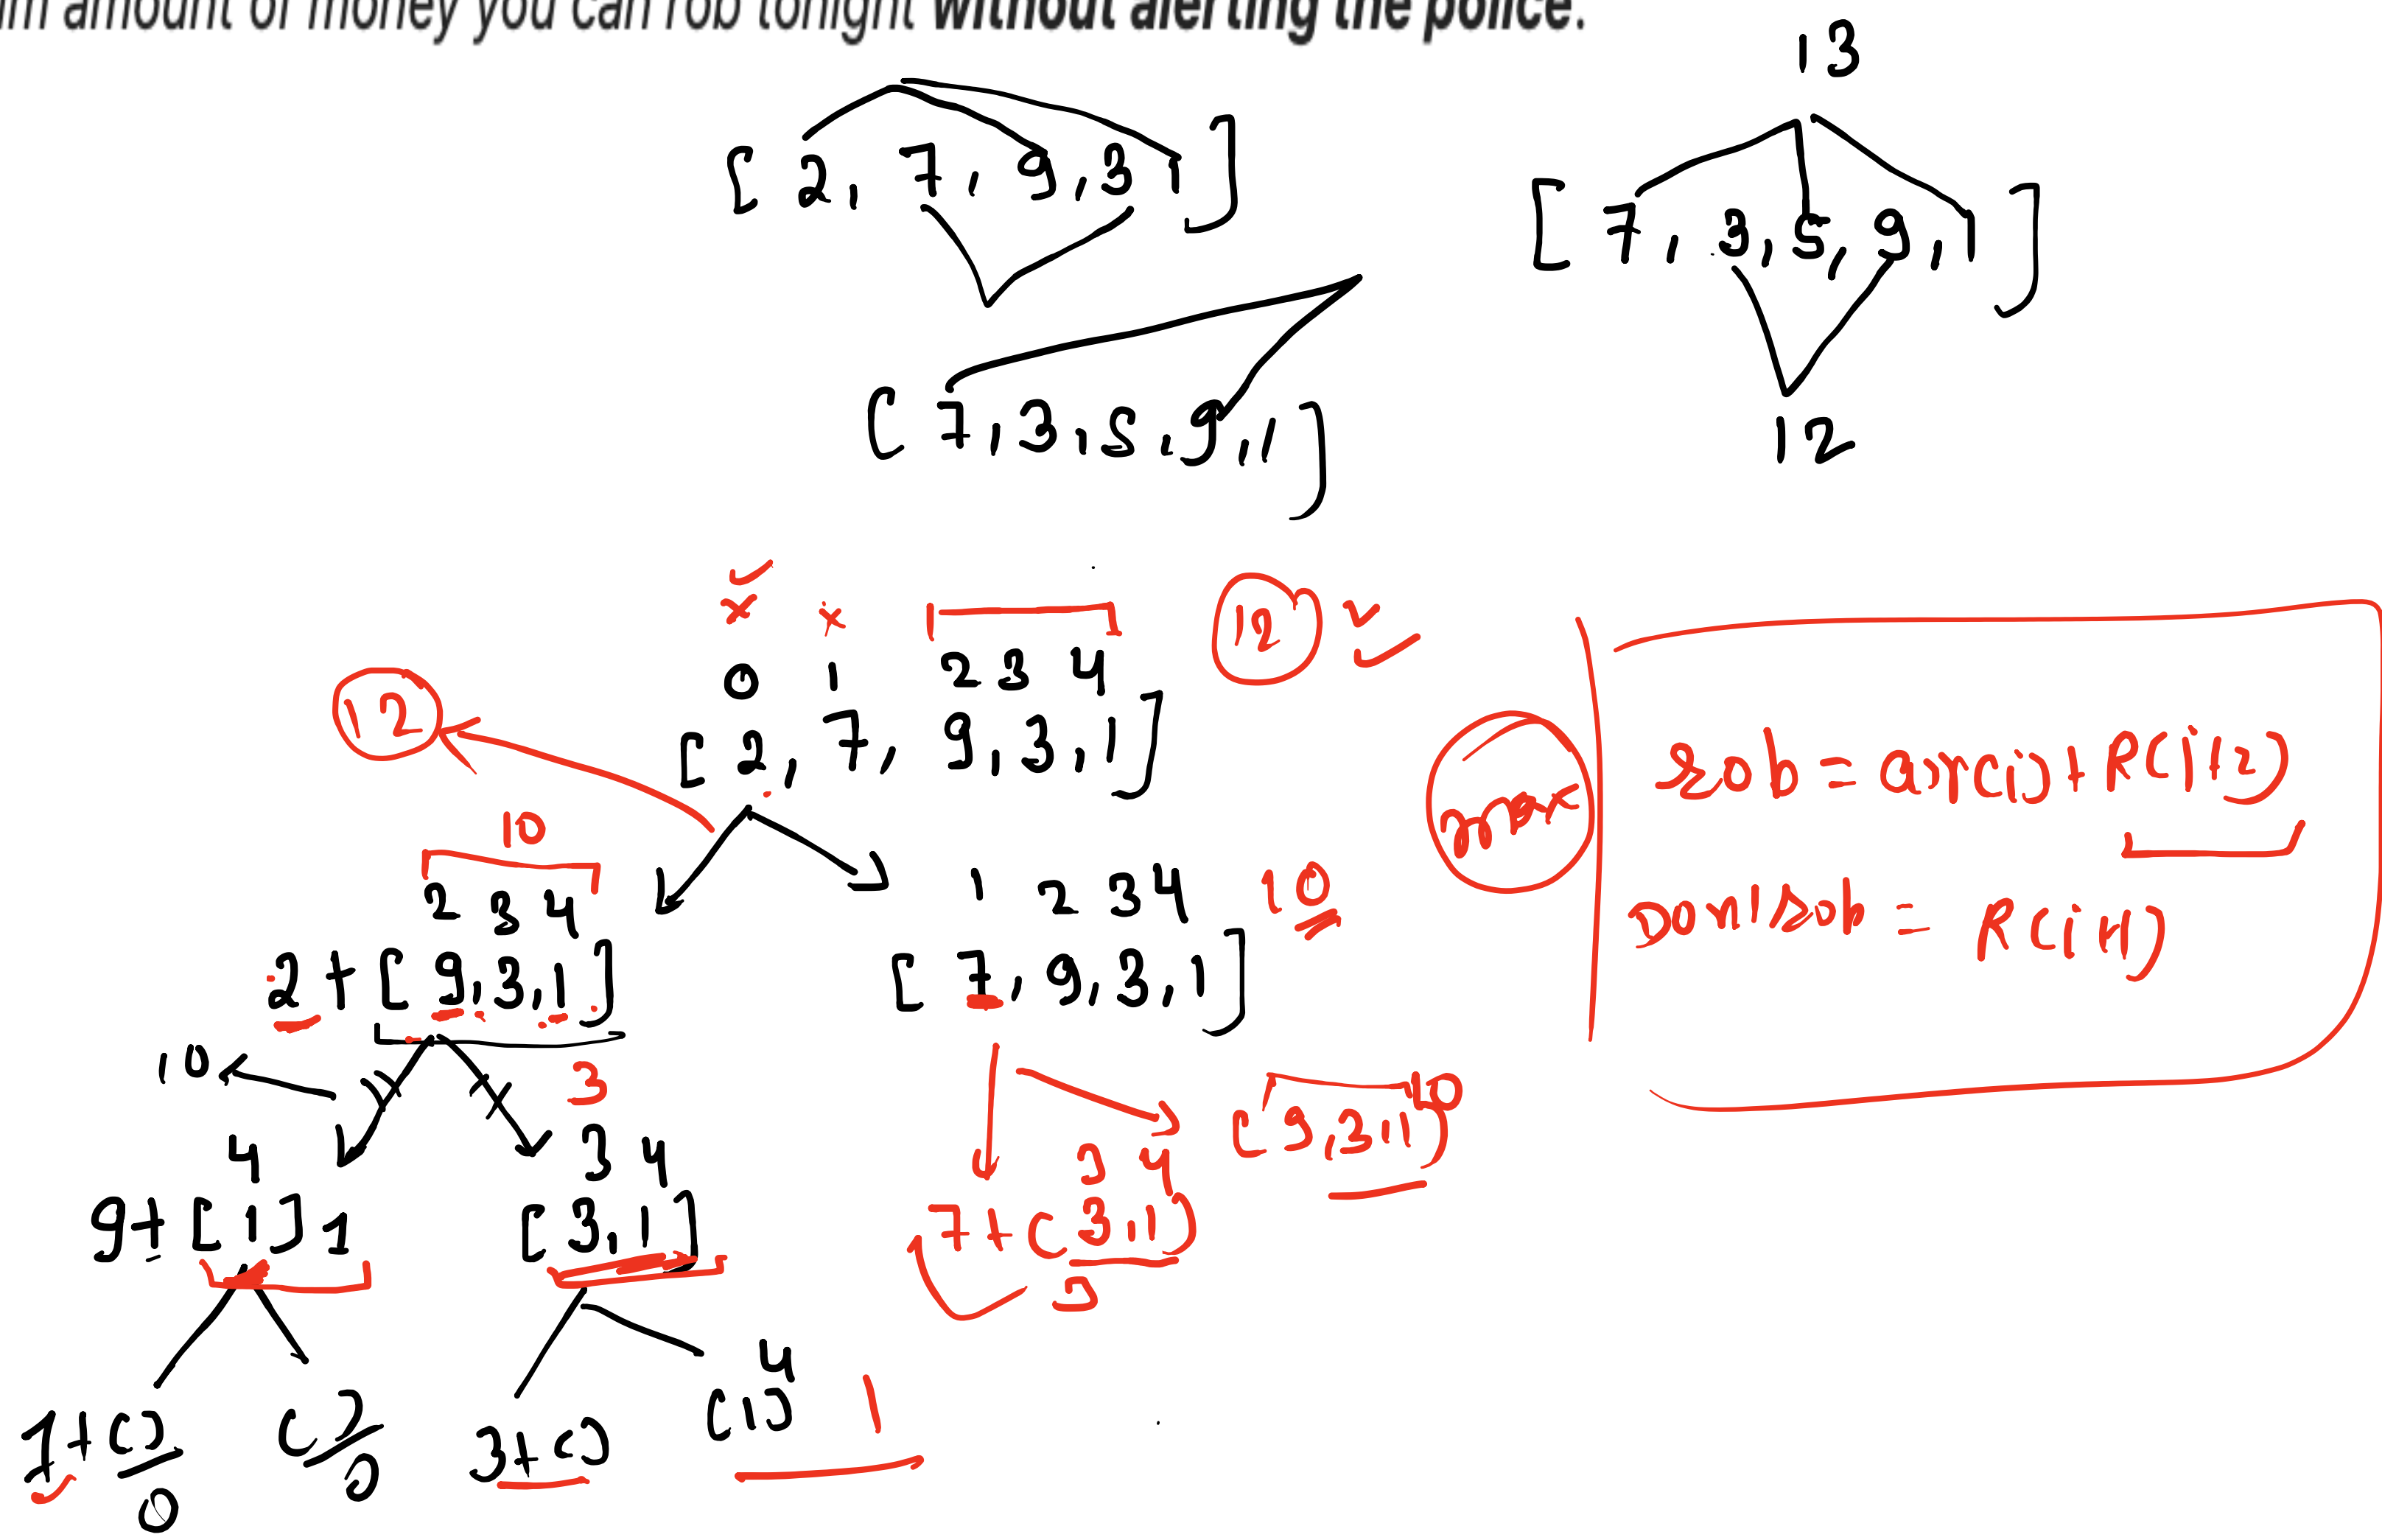 m amount of money you can rob tonight without alerting the police.
13
[ 2, 7, 9, 3 1 ]
[ 7, 3, 5, 9, 1 ]
[ 7, 3, 5, 9, 1 ]
12
0 1 2 3 4
12
12
[ 2, 7, 9, 3, 1 ]
max
Rob = arr(i) + R(i+2)
Don't rob = R(i+1)
10
2 3 4
1 2 3 4
10
2 + [ 9, 3, 1 ]
[ 7, 9, 3, 1 ]
10
3
10
[ 9, 3, 1 ]
4
3 4
3 4
9 + [ 1 ] 1
[ 3, 1 ]
7 + [ 3, 1 ]
3
4
1 + [ ]
[ ]
3 + [ ]
[ 1 ]
1
0
0